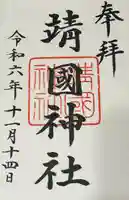 奉拝
靖國神社
靖国神社
令和六年十一月十四日